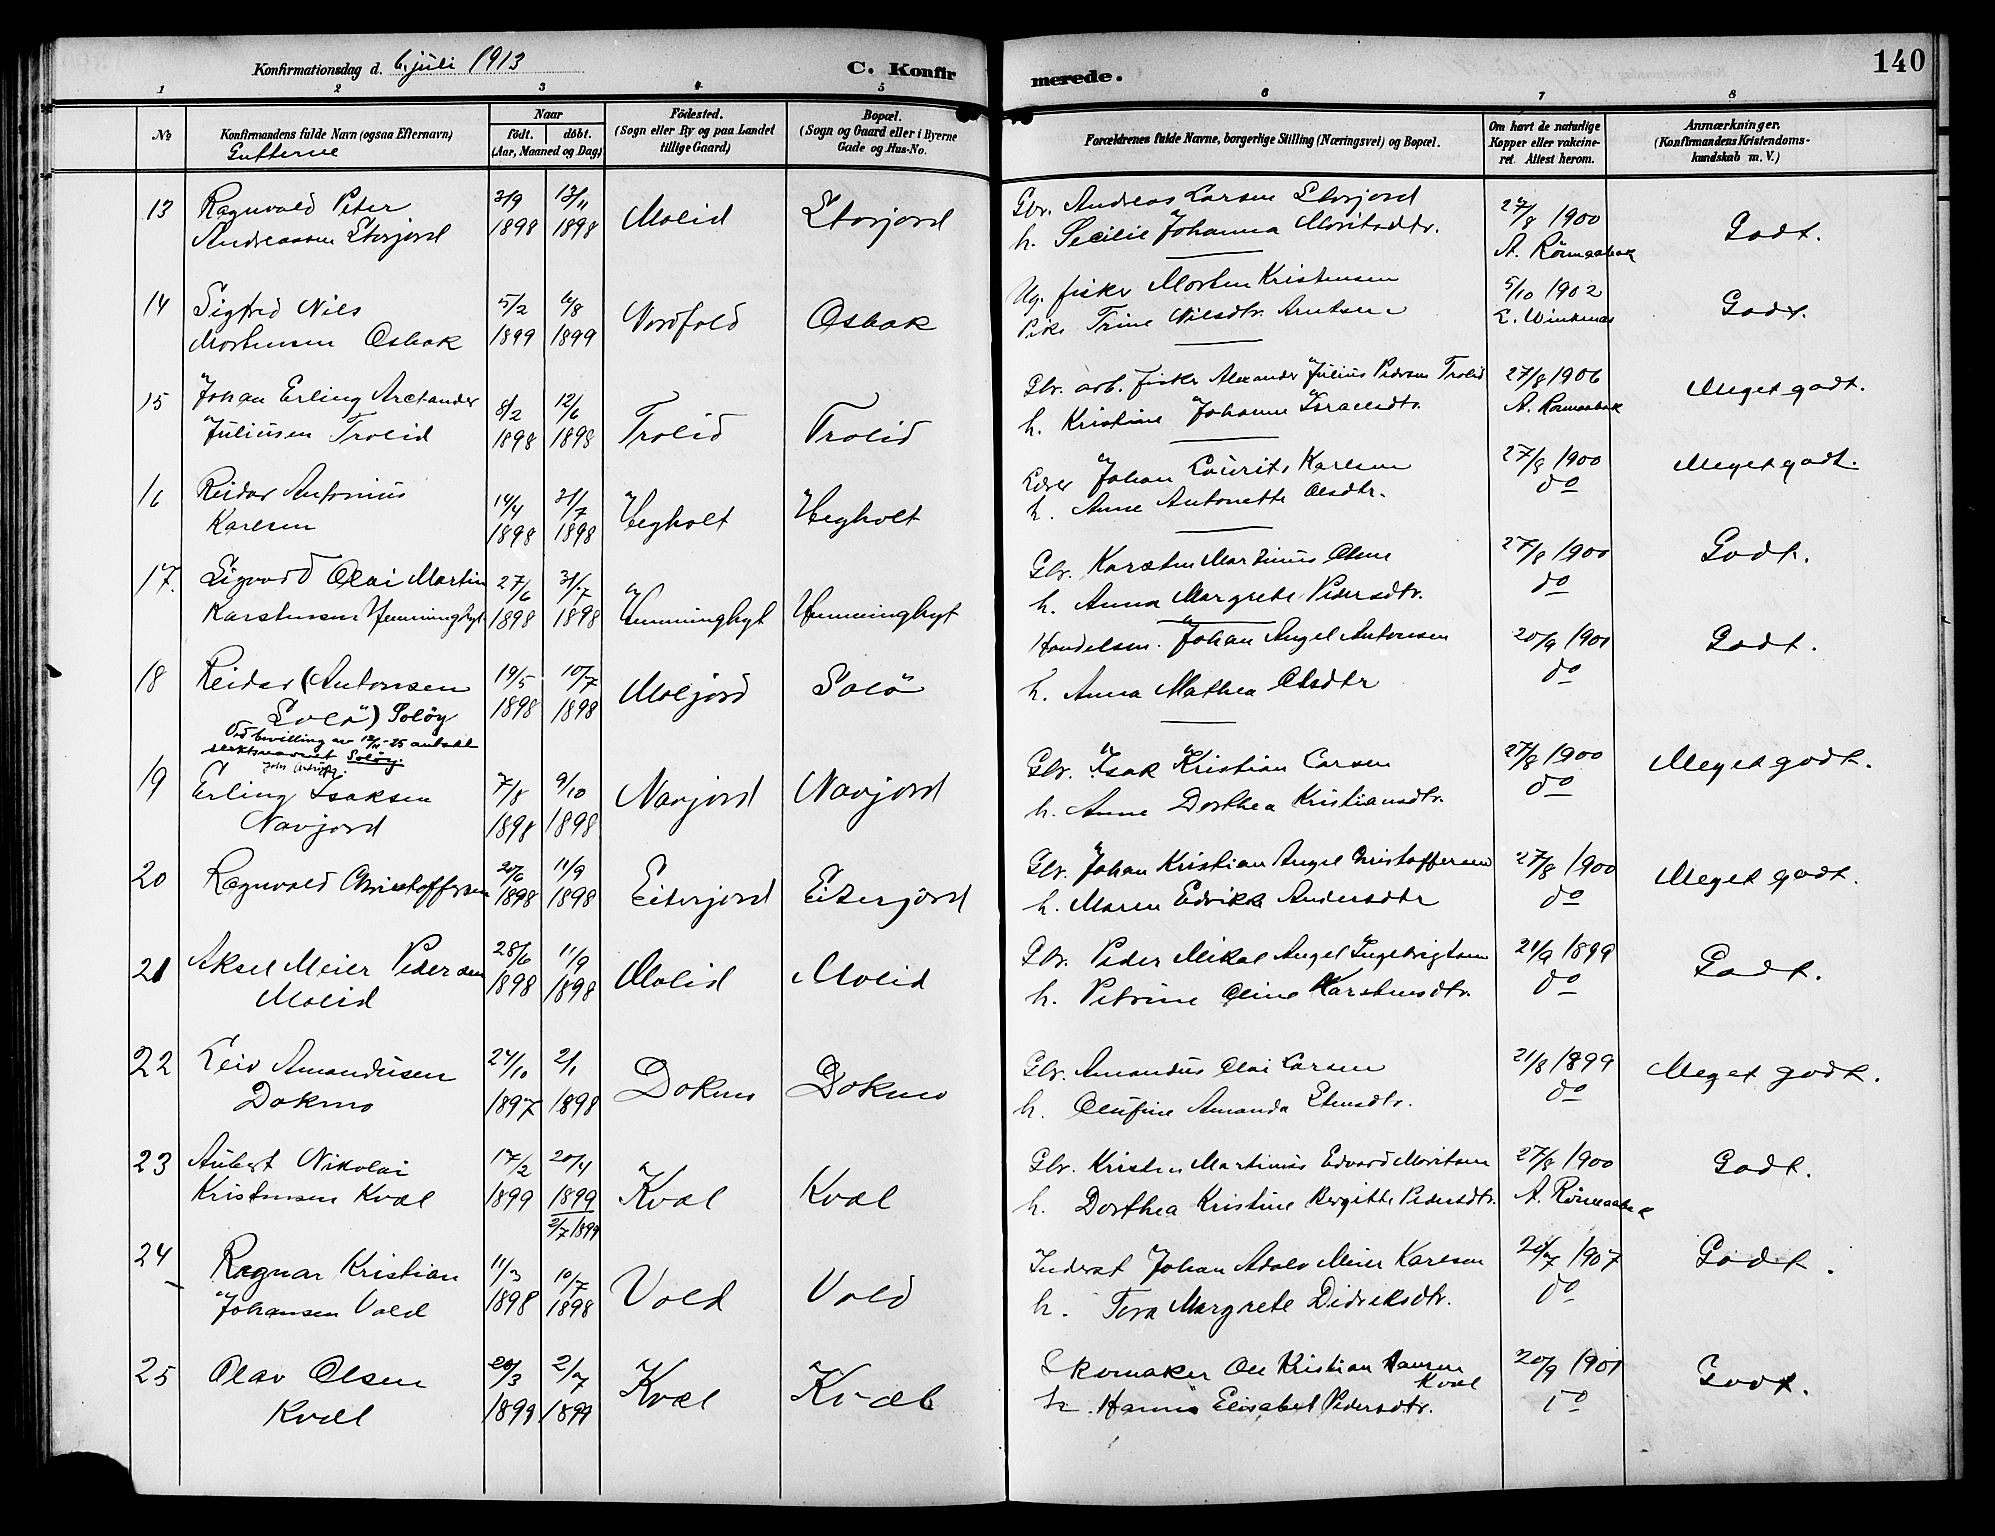 Konfirmationsdag d. 6 juli 1913
C. Konfir
merede.
140
1 2 3 4 5 6 7 8
№
Konfirmandens fulde Navn (ogsaa Efternavn)
Gutterne
Naar
født. døbt.
(Aar, Maaned og Dag)
Födested.
(Sogn eller By og paa Landet
tillige Gaard)
Bopæl.
(Sogn og Gaard eller i Byerne
Gade og Hus-No.
Forældrenes fulde Navne, borgerlige Stilling (Næringsvei) og Bopæl.
Om havt de naturlige
Kopper eller vakcine-
ret. Attest herom.
Anmærkninger.
(Konfirmandens Kristendoms-
kundskab m. V.)
13 Ragnvald Peter 3/9 13/11 Molid Storjord Gbr. Andreas Larsen Storjord 27/8 1900 Godt.
Andreassen Storjord 1898 1898 h. Secilie Johanna Moritsdtr. A. Römaabak
14 Sigfred Nils 5/2 6/8 Nordfold Osbak Ug. fisker Morten Kristensen 5/10 1902 Godt.
Mortensen Osbak 1899 1899 Pike Trine Nilsdtr. Arntsen
15 Johan Erling Arctander 8/2 12/6 Trolid Trolid Gbr. arb. fisker Alexander Julius Pedersen Trolid 27/8 1906 Meget godt.
Juliusen Trolid 1898 1898 h. Kristine Johanne Israelsdtr. A. Römaabak
16 Reidar Antonius 14/4 31/7 Hegholt Hegholt Johan Laurits Karlsen 27/8 1900 Meget godt.
Karlsen 1898 1898 h. Anne Antonette Olsdtr. do
17. Sigvard Olai Martin 27/6 31/7 Hemminghyt Hemminghyt Gbr. Karsten Martinus Olsen 27/8 1900 Godt.
Karstensen Hemminghyt 1898 1898 h. Anna Margrete Pedersdtr. do
18 Reidar (Antonsen 19/5 10/7 Moljord Solö Handelsm. Johan Angel Antonsen 20/9 1900 Godt.
Solö) Soløy 1898 1898 h. Anna Mathea Olsdtr do
Ved bevilling av 12/11-25 antatt
slektsnavnet Soløy.
19 Erling Isaksen 7/8 9/10 Navjord Navjord Gbr. Isak Kristian Larsen 27/8 1900 Meget godt.
Navjord 1898 1898 h. Anne Dorthea Kristiansdtr. do
20 Ragnvald Christoffersen 20/6 11/9 Eiterjord Eiterjord Gbr. Johan Kristian Angel Christoffersen 27/8 1900 Meget godt.
1898 1898 h. Maren Edvikke Andersdtr do
21 Aksel Meier Pedersen 28/6 11/9 Molid Molid Gbr. Peder Mikal Angel Ingebrigtsen 21/9 1899 Godt.
Molid 1898 1898 h. Petrine Oline Karstensdtr. do
22 Leiv Amandusen 24/10 2/1 Dokmo Dokmo Gbr. Amandus Olai Larsen 21/8 1899 Meget godt.
Dokmo 1897 1898 h. Olufine Amanda Stensdtr. do
23 Aubert Nikolai 17/2 20/4 Kvæl Kvæl Gbr. Kristen Martinus Edvard Moritsen 27/8 1900 Godt.
Kristensen Kvæl 1899 1899 h. Dorthea Kristine Bergitte Pedersdtr. A. Römaabak
2/7 1899
24 Ragnar Kristian 11/3 10/7 Vold Vold Inderst Johan Adolv Meier Karlsen 20/7 1907 Godt.
Johansen Vold 1898 1898 h. Tora Margrete Didriksdtr. do
25 Olav Olsen 20/3 2/7 Kvæl Kvæl Skomaker Ole Kristian Hansen 20/9 1901 Godt.
Kvæl 1899 1899 Kvæl
h. Hanna Elisabet Pedersdtr. do